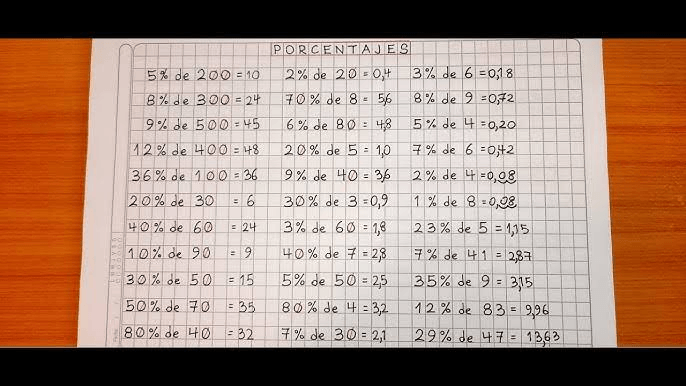 PORCENTAJES
5% de 200 = 10 2% de 20 = 0,4 3% de 6 = 0,18
8% de 300 = 24 70% de 8 = 5,6 8% de 9 = 0,72
9% de 500 = 45 6% de 80 = 4,8 5% de 4 = 0,20
12% de 400 = 48 20% de 5 = 1,0 7% de 6 = 0,42
36% de 100 = 36 9% de 40 = 3,6 2% de 4 = 0,08
20% de 30 = 6 30% de 3 = 0,9 1% de 8 = 0,08
40% de 60 = 24 3% de 60 = 1,8 23% de 5 = 1,15
10% de 90 = 9 40% de 7 = 2,8 7% de 41 = 2,87
30% de 50 = 15 5% de 50 = 2,5 35% de 9 = 3,15
50% de 70 = 35 80% de 4 = 3,2 12% de 83 = 9,96
80% de 40 = 32 7% de 30 = 2,1 29% de 47 = 13,63